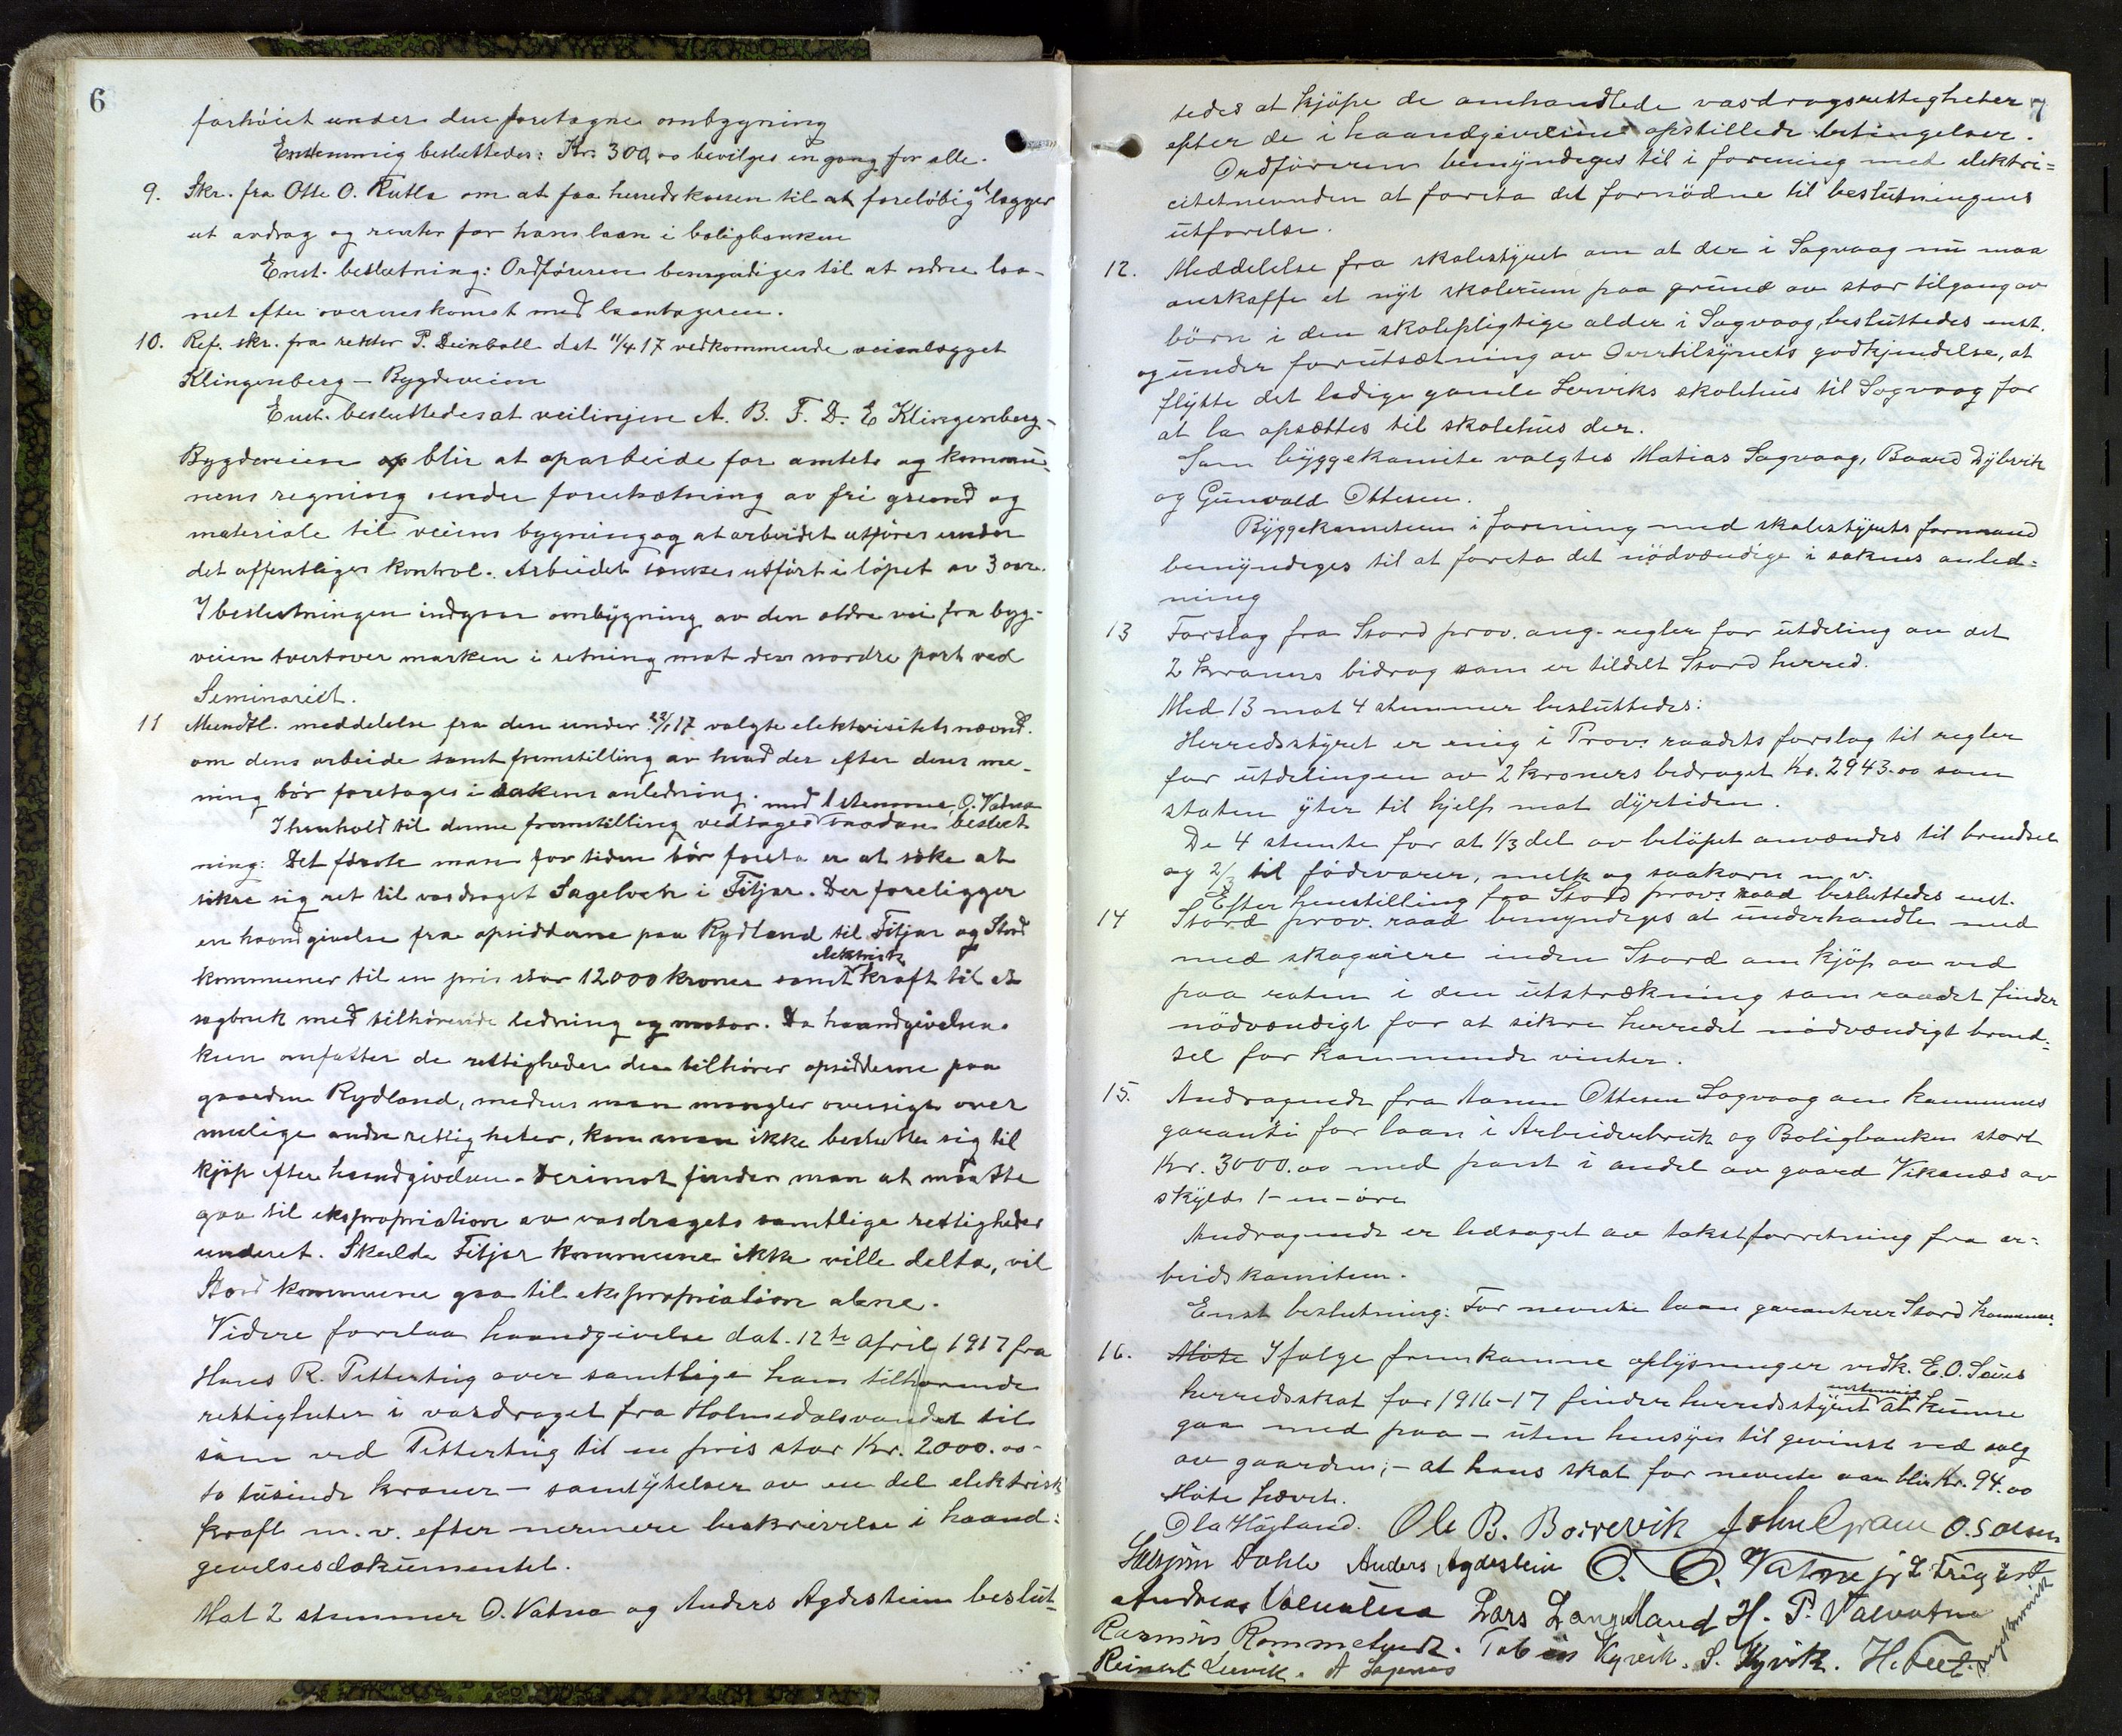 6
forhöiet under den foretagne ombygning
Enstemmig besluttedes: Kr. 300,00 bevilges en gang for alle.
9. Skr. fra Otte O. Rutle om at faa herredskassen til at foreløbig at lægger
ut avdrag og renter for hans laan i boligbanken
Enst. beslutning: Ordføreren bemyndiges til at ordne laa-
net efter overenskomst med laantageren.
10. Ref. skr. fra rektor P. Deinboll dat 11/4 17 vedkommende veianlægget
Klingenberg – Bygdeveien
Enst. besluttedes at veilinjen A. B. F. D. E Klingenberg-
Bygdeveien blir at oparbeide for amtets og kommu-
nens regning under forutsætning av fri grund og
materiale til veiens bygning og at arbeidet utføres under
det offentliges kontrol. Arbeidet tænkes utført i löpet av 3 aar.
I beslutningen indgaar ombygning av den ældre vei fra byg-
veien tvertover marken i retning mot den nordre port ved
Seminariet.
11 Mundtl. meddelelse fra den under 22/1 17 valgte elektrisitetsnævnd.
om dens arbeide samt fremstilling av hvad der efter deres me-
ning bör foretages i sakens anledning.
med 1 stemme, O. Vatna
I henhold til denne fremstilling vedtages saadan beslut
ning: Det første man for tiden bör foreta er at søke at
sikre sig ret til vasdraget Sagelven i Fitjar. Der foreligger
en haandgivelse fra opsidderne paa Rydland til Fitjar og Stord
elektrisk
kommuner til en pris stor 12000 kroner samt kraft til et
sagbruk med tilhørende ledning og motor. Da haandgivelsen
kun omfatter de rettigheder der tilhører opsidderne paa
gaarden Rydland, medens man mangler oversigt over
mulige andre rettigheter, kan man ikke beslutte sig til
kjöp efter haandgivelsen. Derimot finder man at maatte
gaa til ekspropriation av vasdragets samtlige rettigheder
underet. Skulde Fitjar kommune ikke ville delta, vil
Stord kommune gaa til ekspropriation alene.
Videre forelaa haandgivelse dat. 12te april 1917 fra
Hans R. Tittertug over samtlige ham tilhörende
rettigheter i vasdraget fra Holmedalsvandet til
sjöen ved Pettertug til en pris stor Kr. 2000.00 -
to tusinde kroner – samt ytelser av en del elektrisk
kraft m. v. efter nermere beskrivelse i haand-
gevelsesdokumentet.
Mot 2 stemmer O. Vatna og Anders Agdestein beslut-
7
tedes at kjöpe de omhandlede vasdragsrettigheter
efter de i haandgivelsene opstillede betingelser.
Ordföreren bemyndiges til i forening med elektri=
citetnevnden at foreta det fornödne til beslutningens
utförelse.
12. Meddelelse fra skolestyret om at der i Sagvaag nu maa
anskaffe et nyt skolerum paa grund av stor tilgang av
börn i den skolepligtige alder i Sagvaag, besluttedes enst.
og under forutsætning av Overtilsynets godkjendelse, at
flytte det ledige gamle Lerviks skolehus til Sagvaag for
at la opsættes til skolehus der.
Som byggekomite valgtes Matias Sagvaag, Baard Dybvik
og Gunvald Ottesen.
Byggekomiteen i forening med skolestyrets formand
bemyndiges til at foreta det nödvendige i sakens anled=
ning
13 Forslag fra Stord prov. ang. regler for utdeling av det
2 kroners bidrag som er tildelt Stord herred.
Med 13 mot 4 stemmer besluttedes:
Herredsstyret er enig i Prov. raadets forslag til regler
for utdelingen av 2 kroners bedraget Kr. 2943.00 som
staten yter til hjelp mot dyrtiden.
De 4 stemte for at 1/3 del av belöpet anvændes til brendsel
og 2/3 til födevarer, melk og saakorn m. v.
Efter henstilling fra Stord prov. raad besluttedes enst.
14 Stord prov. raad bemyndiges at underhandle med
med skogeiere inden Stord om kjöp av ved
paa roten i den utstrækning som raadet finder
nödvendigt for at sikre herredet nödvændigt brend=
sel for kommende vinter.
15. Andragende fra Aanen Ottesen Sagvaag om kommunes
garanti for laan i Arbeiderbruk og Boligbanken stort
Kr. 3000.00 med pant i andel av gaard Vikanæs av
skyld 1 - en - öre
Andragende er ledsaget av takstforretning fra ar=
beidskomiteen.
Enst beslutning: For nevnte laan garanterer Stord kommune.
16. Möte Ifölge fremkomne oplysninger vedk. E. O. Seines
enstemmig
herredsskat for 1916-17 finder herredsstyret at kunne
gaa med paa – uten hensyn til gevinst ved salg
av gaarden; – at hans skat for nevnte aar blir Kr. 94.00
Möte hævet.
Ola Högland. Ole B. Borrevik John Gram O. S Olsen
Salsjön Dahle Anders Agdestein O. O. Vatne jr L Trygest
Andreas Valvatna Lars Langeland H. P. Valvatna
Rasmus Rommetvedt. Tobias Kyvik. S. Kyvik. H. Tveit.
Reinert Leirvik. A Sagenes